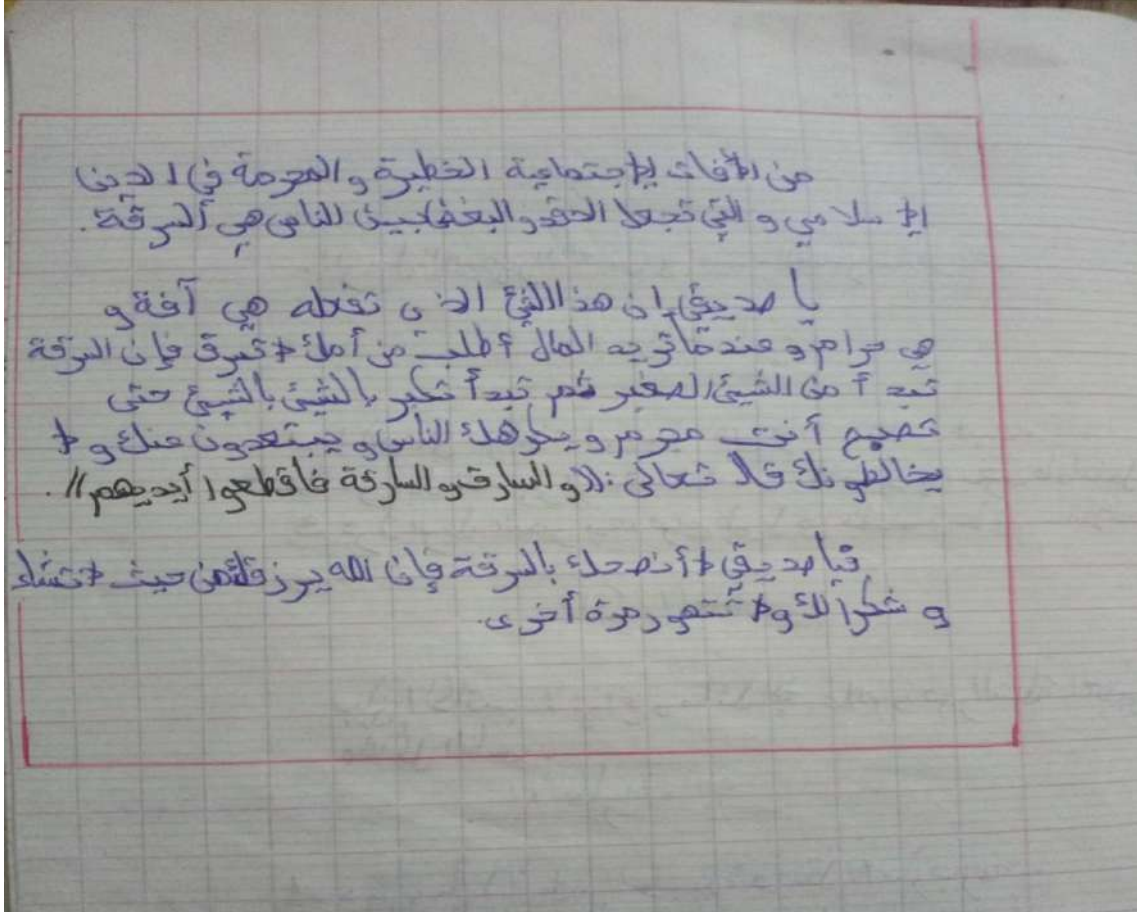 من الآفات الإجتماعية الخطيرة و المحرمة في الدين
الإسلامي و التي تجعل الحقد والبغض بين الناس هي السرقة.
يا صديقي إن هذا الشئ الذي تفعله هي آفة و
هي حرام و عندما تريد المال أطلب من أمك لا تسرق فإن السرقة
تبدأ من الشيئ الصغير ثم تبدأ تكبر بالشيئ بالشيئ حتى
تصبح أنت مجرم و يكرهك الناس و يبتعدون عنك و لا
يخالطونك قال تعالى :((والسارق و السارقة فاقطعوا أيديهم)).
فيا صديقي لا أنصحك بالسرقة فإن الله يرزقك من حيث لا تشاء
و شكرا لك و لا تتهور مرة أخرى.